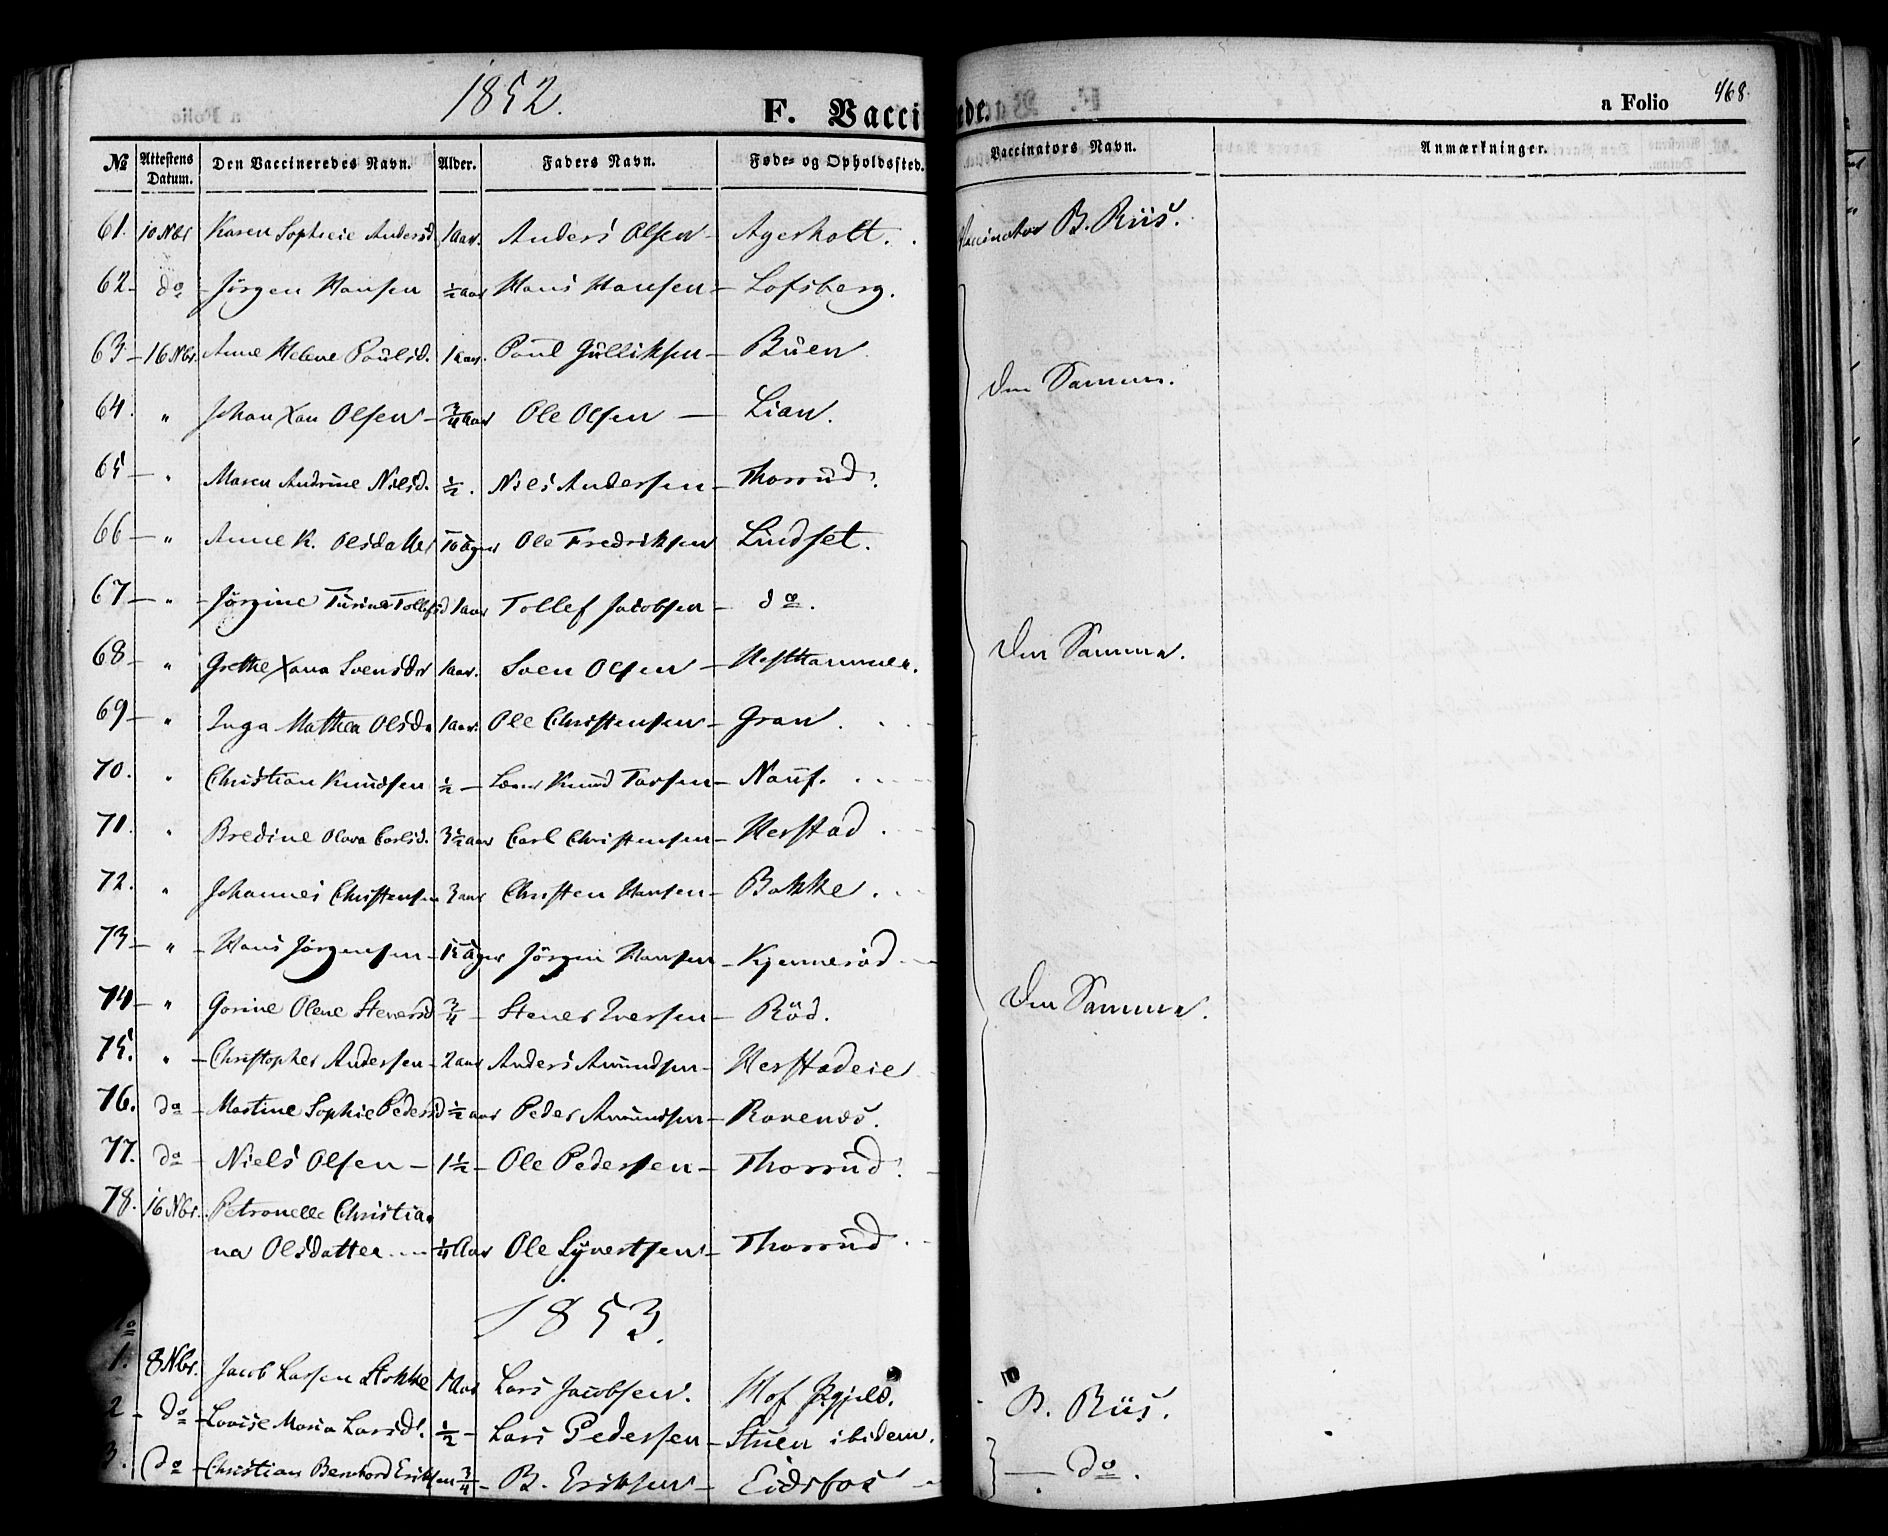 1852.
F. Vacci
nde.
a Folio 468.
No Attestens Datum. Den Vaccineredes Navn. Alder. Faders Navn. Føde- og Opholdssted. Vaccinators Navn. Anmærkninger.
61. 10 Nbr Karen Sophie Andersd 1 aar. Anders Olsen - Agerholt. Vaccinator B. Riis.
62 - do - Jörgen Hansen ½ aar Hans Hansen - Lofsberg.
63 - 16 Nbr. Anne Helene Paulsd. 1 aar. Paul Gulliksen - Buen
Den Samme.
64. " Johan Xan Olsen - ¾ aar Ole Olsen - Lian.
65 - " Maren Andrine Nilsd. ½. Nils Andersen - Thorrud.
66 - " Anne K. Olsdatter 10 Uger Ole Fredriksen Lindset.
67 - " - Jörgine Turine Tollefsd 1 aar Tollef Jacobsen - do.
68 - " Grethe Xana Svensdr 1 aar. Sven Olsen - Hesthammer.
Den Samme.
69 - " Inga Mathea Olsd. 1 aar. Ole Christensen - Gran.
70. " Christian Knudsen ½ - Knud Tarsen - Nauf.
71. " Bredine Olava Carlsd. 3½ aar Carl Christensen - Herstad.
72. " Johannes Christensen 3 aar Christen Hansen - Bakke.
73 - " - Hans Jörgensen - 15 Uger Jörgen Hansen - Kjenneröd
74 - " Gorine Olene Stenersd ¾ - Stener Iversen - Röd.
Den Samme.
75. " - Christopher Andersen - 2 aar Anders Amundsen - Herstadeie
76. do - Martine Sophie Pedersd ½ aar Peder Amundsen - Ravenæs.
77. do - Niels Olsen - 1½ - Ole Pedersen - Thorrud.
78. 16 Nbr. Petronelle Christia-
na Olsdatter ¼ Aar Ole Syvertsen - Thorrud.
1853.
No
1. 8 Nbr. Jacob Larsen Stokke 1 Aar Lars Jacobsen. Hof B. Riis.
2 - do - Lovise Maria Larsd. ½ - Lars Pedersen - Stuen ibidem.
3. do - Christian Bernhard Eriksen ¾ - B. Eriksen - Eidsfos - do.